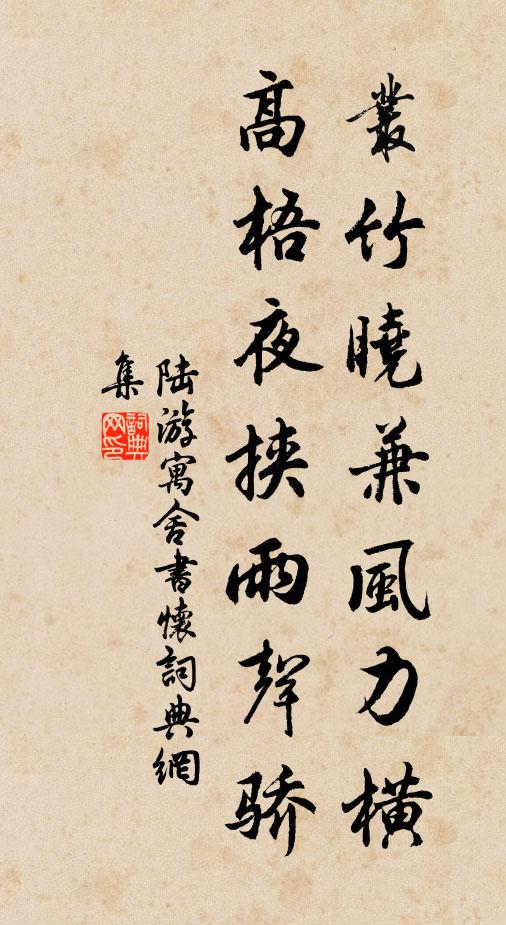 叢竹曉兼風力橫
高梧夜挾雨聲骄
陆游寓舍書懷詞典網
集
詞典网印